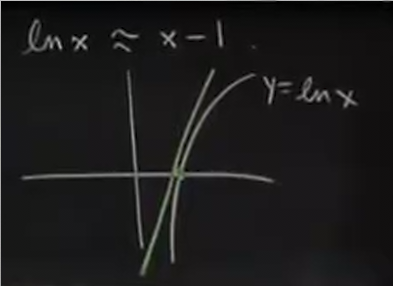 ln x ≈ x - 1.
y = ln x